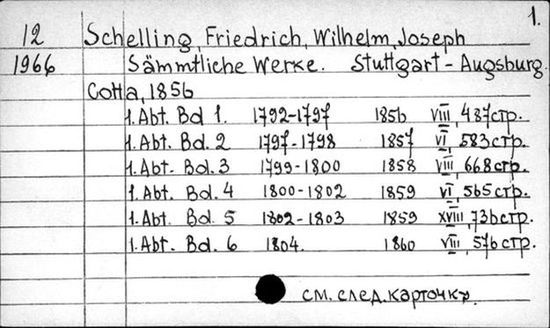 1.
12 Schelling, Friedrich, Wilhelm, Joseph
1966 Sämmtliche Werke. Stuttgart - Augsburg.
Cotta, 1856
1. Abt. Bd 1. 1792-1797 1856 VIII, 487 стр.
1. Abt. Bd. 2 1797-1798 1857 VI, 583 стр.
1. Abt. Bd. 3 1799-1800 1858 VIII, 668 стр.
1. Abt. Bd. 4 1800-1802 1859 VI, 565 стр.
1. Abt. Bd. 5 1802-1803 1859 XVIII, 736 стр.
1. Abt. Bd. 6 1804. 1860 VIII, 576 стр.
см. след. карточку.